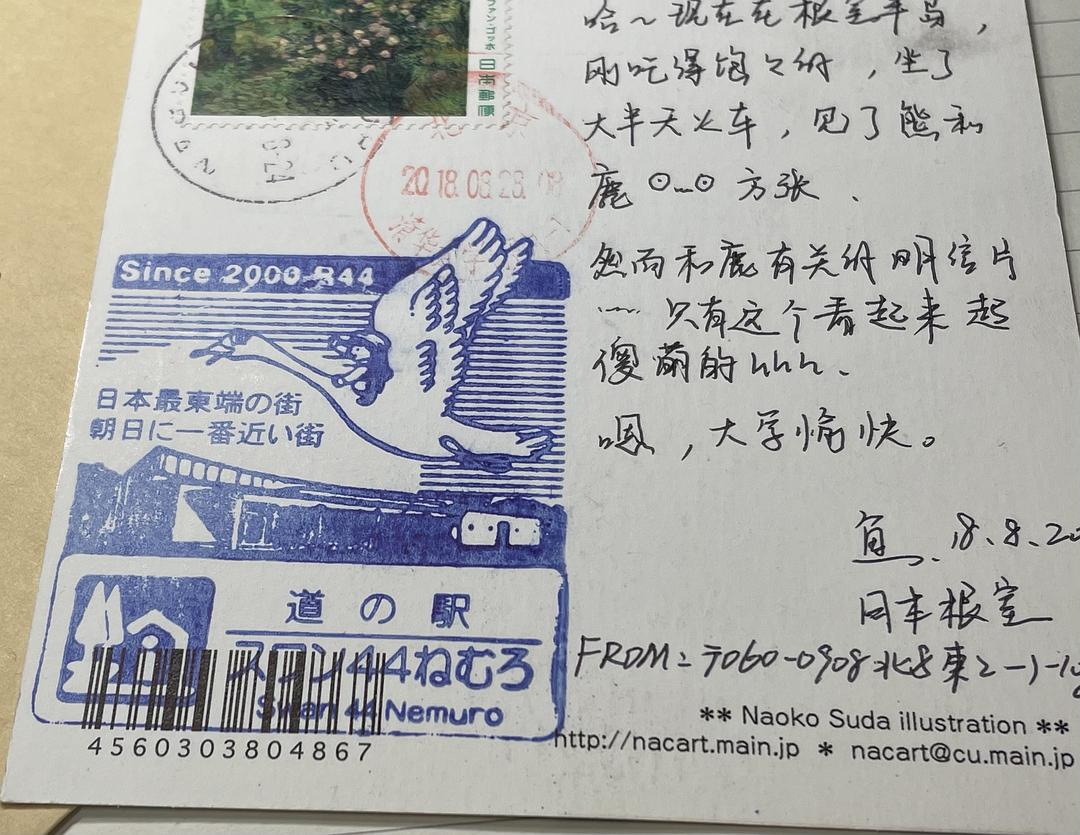 ファン・ゴッホ 日本郵便
2018.08.28.08
Since 2000 R44
日本最東端の街
朝日に一番近い街
道の駅
スワン44ねむろ
Swan 44 Nemuro
4560303804867
哈～现在在根室半岛，
刚吃得饱饱的，坐了
大半天火车，见了熊和
鹿 ⊙…⊙ 方张、
然而和鹿有关的明信片
…… 只有这个看起来超
傻萌的hhh、
嗯，大学愉快。
18.8.20
日本根室
FROM：〒060-0908 北8東2-1-1
** Naoko Suda illustration **
http://nacart.main.jp * nacart@cu.main.jp